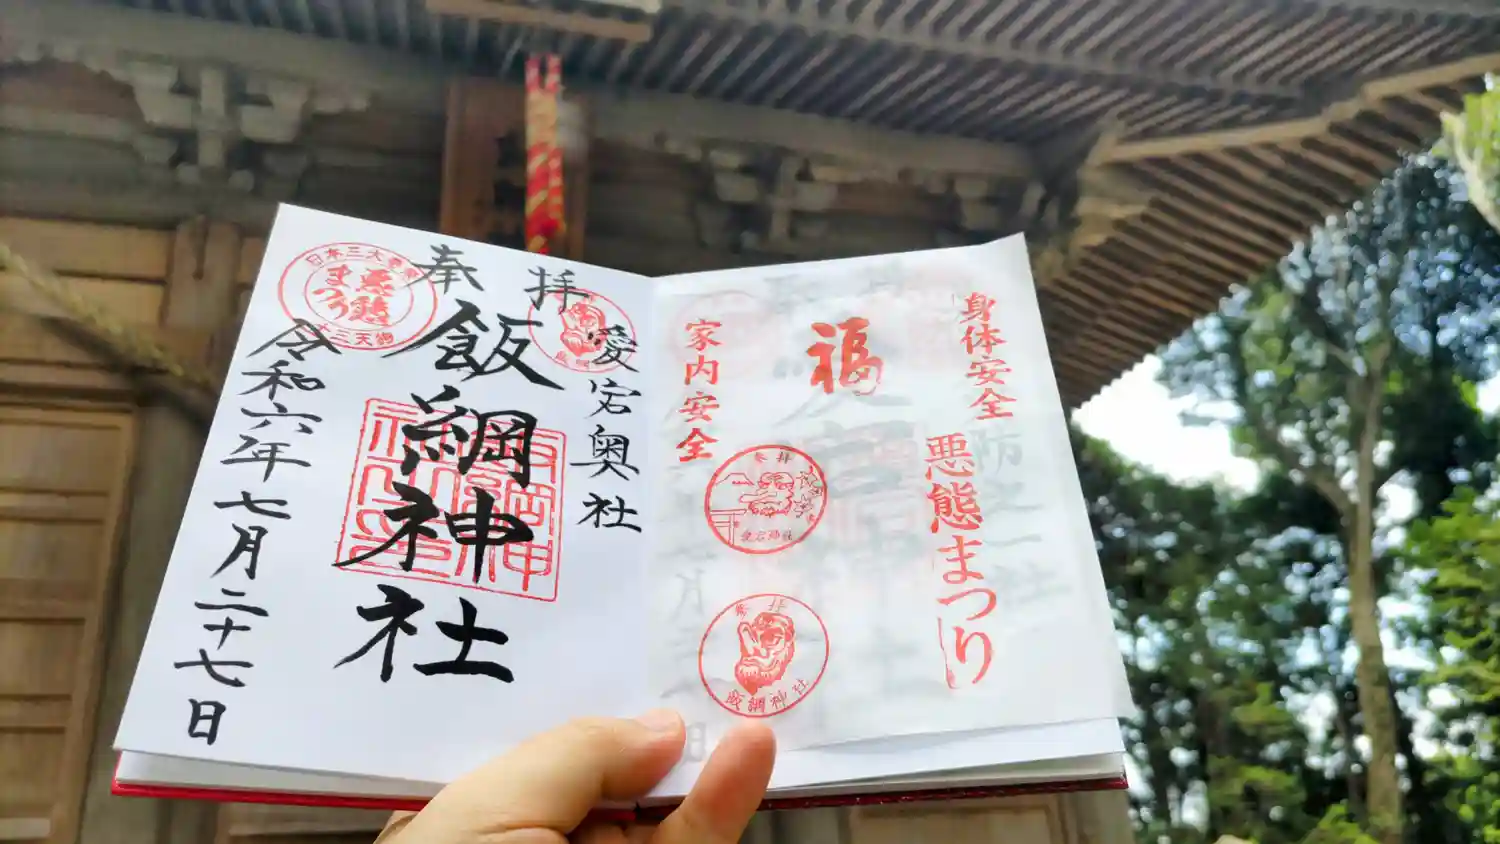 身体安全
悪態まつり
福
家内安全
参拝
愛宕神社
参拝
飯綱神社
奉拝
愛宕奥社
飯綱神社
令和六年七月二十七日
日本三大悪態
悪態
まつり
飯綱神